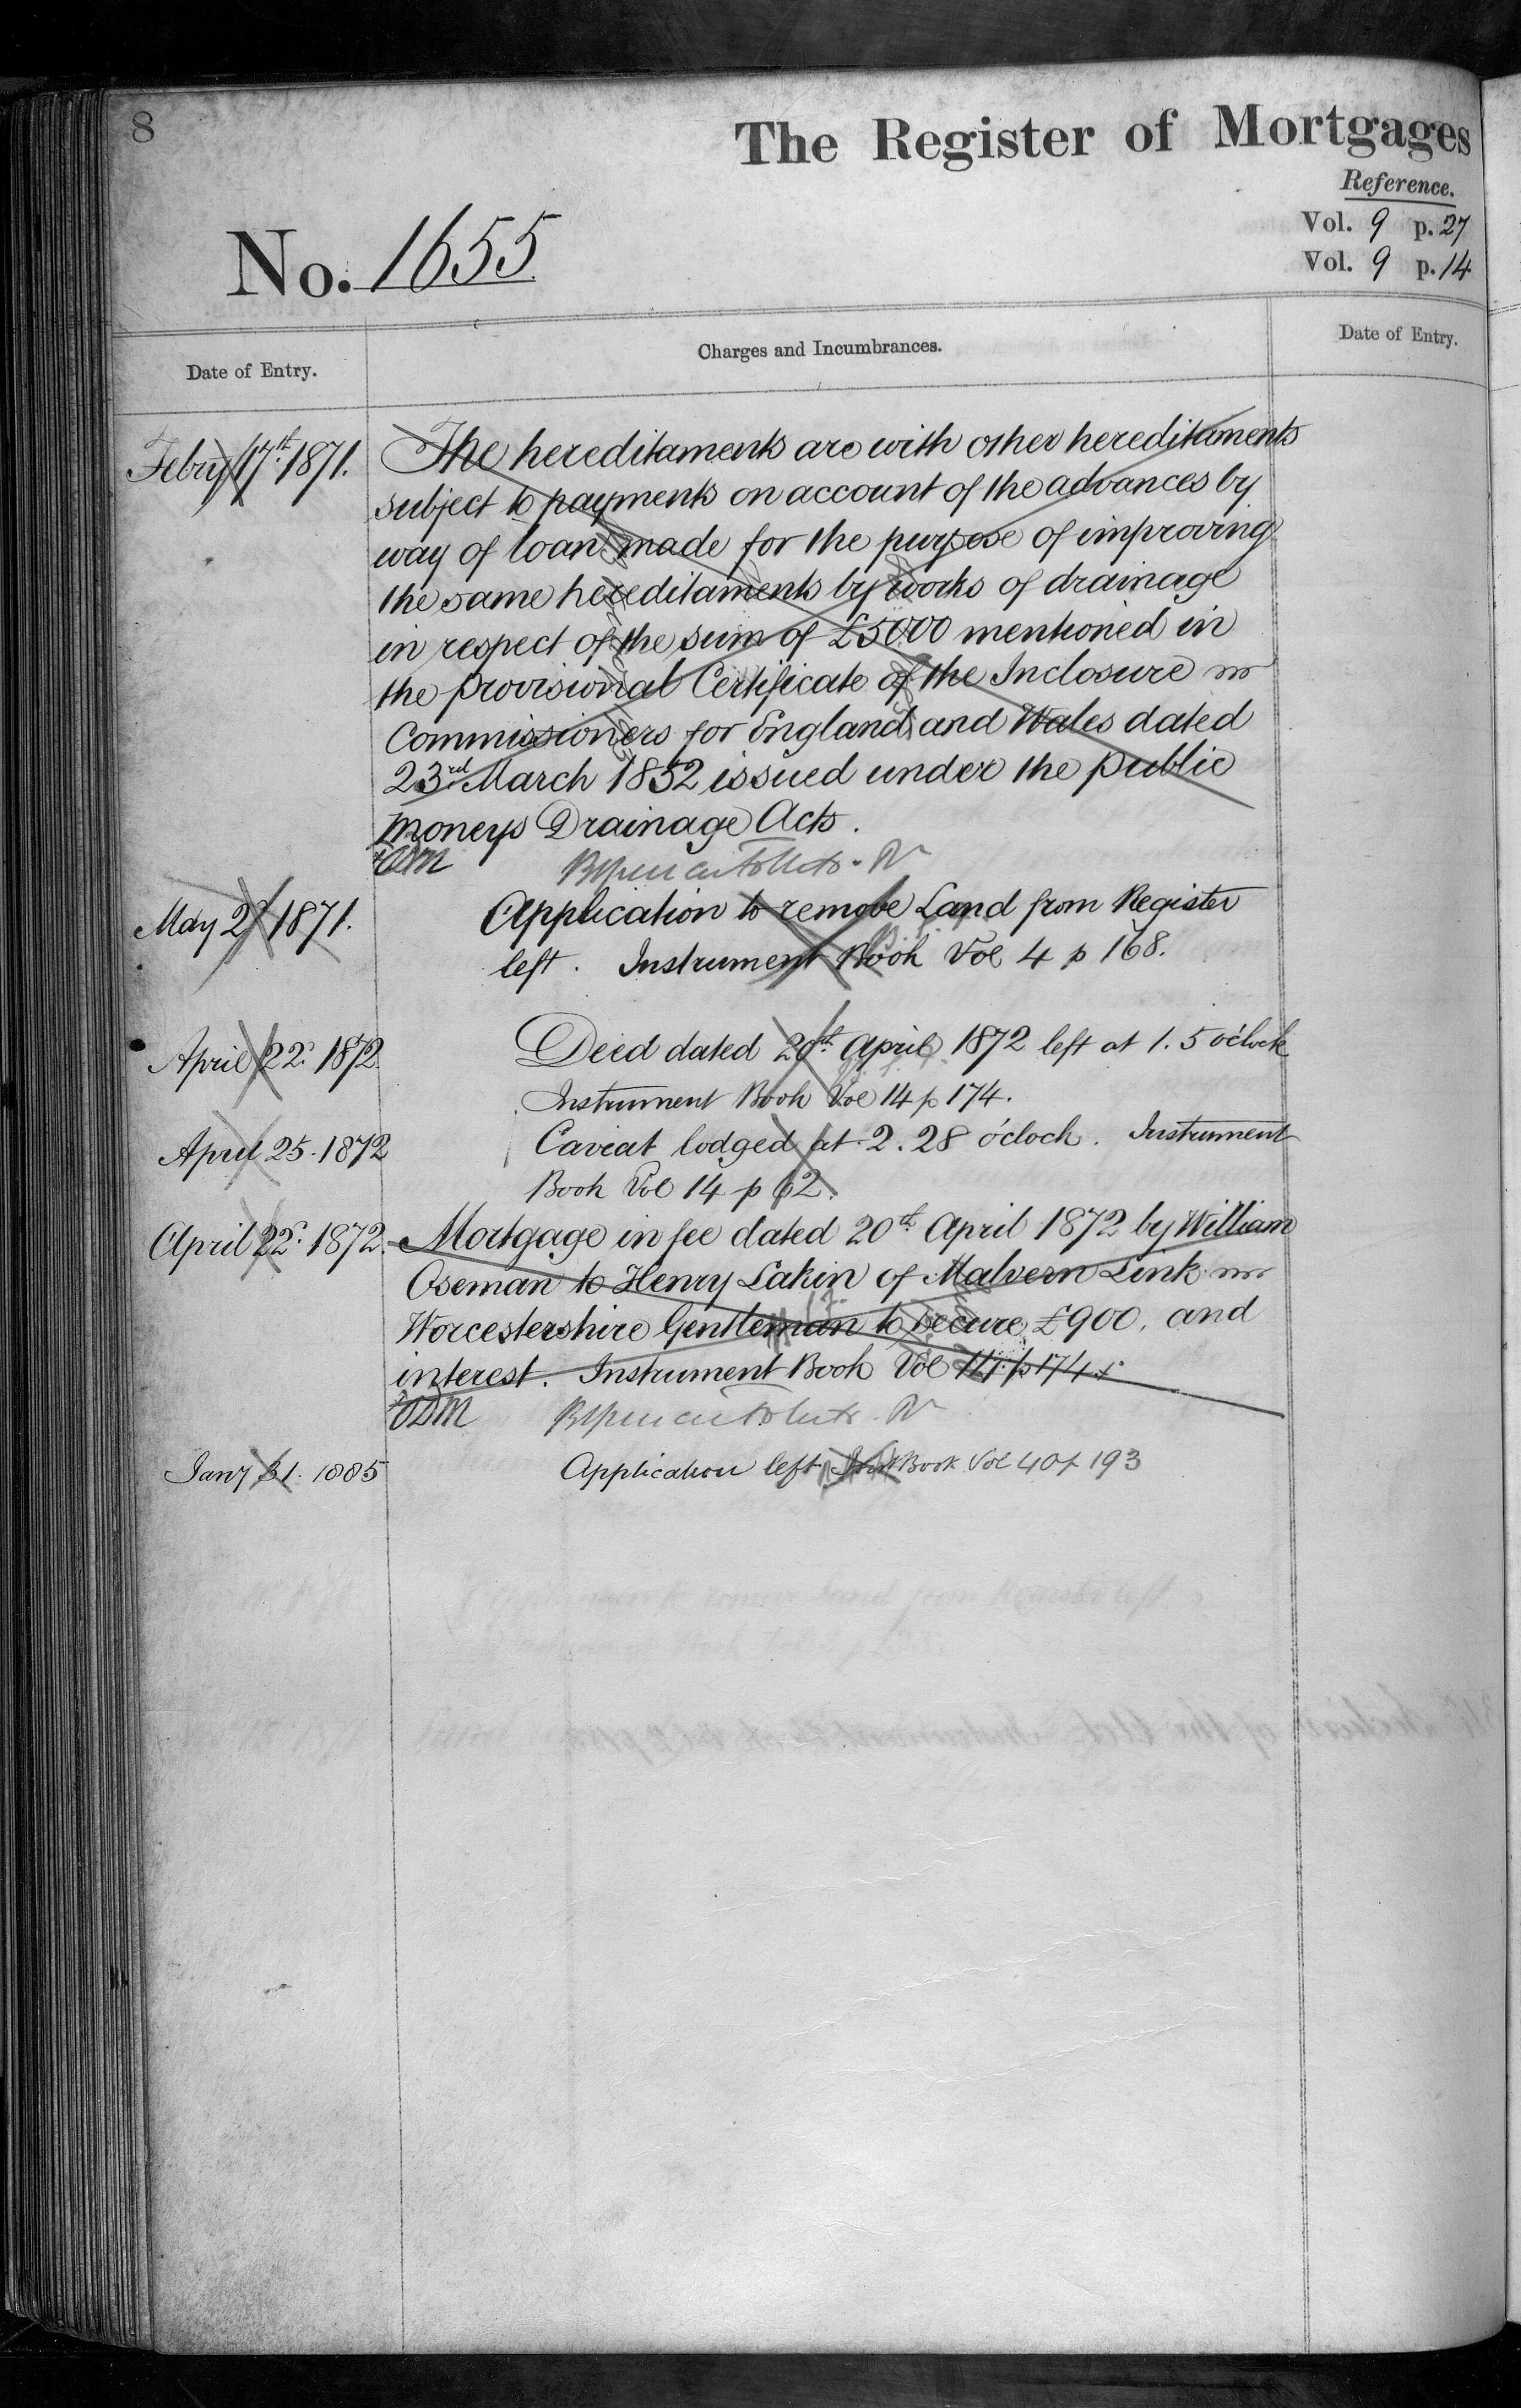 8
The Register of Mortgages
Reference.
Vol. 9 p. 27
Vol. 9 p. 14
No. 1655
Date of Entry.
Charges and Incumbrances.
Date of Entry.
Febry 17th 1871.
The hereditaments are with other hereditaments
subject to payments on account of the advances by
way of loan made for the purpose of improving
the same hereditaments by works of drainage
in respect of the sum of £5000 mentioned in
the provisional Certificate of the Inclosure
Commissioners for England and Wales dated
23rd March 1852 issued under the public
moneys Drainage Acts.
May 2 1871.
Application to remove Land from Register
left. Instrument Book Vol 4 p 168.
April 22 1872
Deed dated 20th April 1872 left at 1.5 o'clock
Instrument Book Vol 14 p 174.
April 25. 1872
Caveat lodged at 2.28 o'clock. Instrument
Book Vol 14 p 62.
April 22 1872.
Mortgage in fee dated 20th April 1872 by William
Oseman to Henry Lakin of Malvern Link
Worcestershire Gentleman to secure £900. and
interest. Instrument Book Vol 14 p 174
Jany 31. 1885
Application left Inst Book Vol 40 p 193